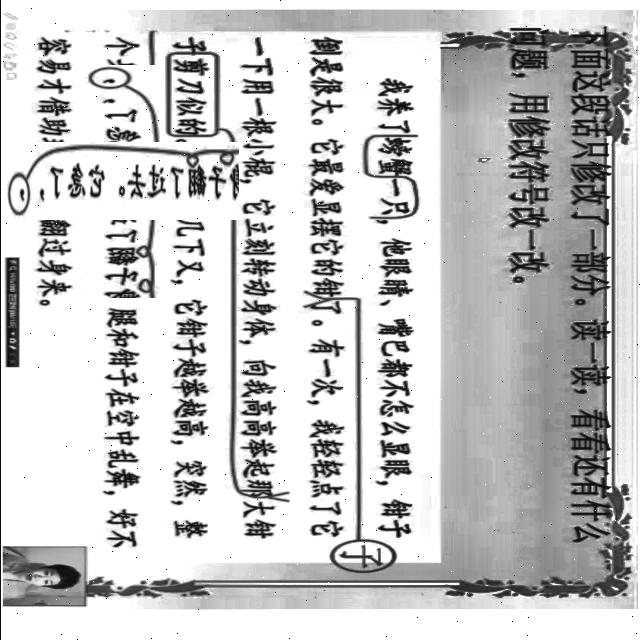 下面这段话只修改了一部分。读一读,看看还有什么
问题,用修改符号改一改。
我养了螃蟹一只,他眼睛、嘴巴都不怎么显眼,钳子
倒是很大。它最爱显摆它的钳了。有一次,我轻轻点了它
子
一下用一根小棍,它立刻转动身体,向我高高举起那大钳
子剪刀似的。几下又,它钳子越举越高,突然,整
个腿和钳子在空中乱舞,好不
容易才借助翻过身来。